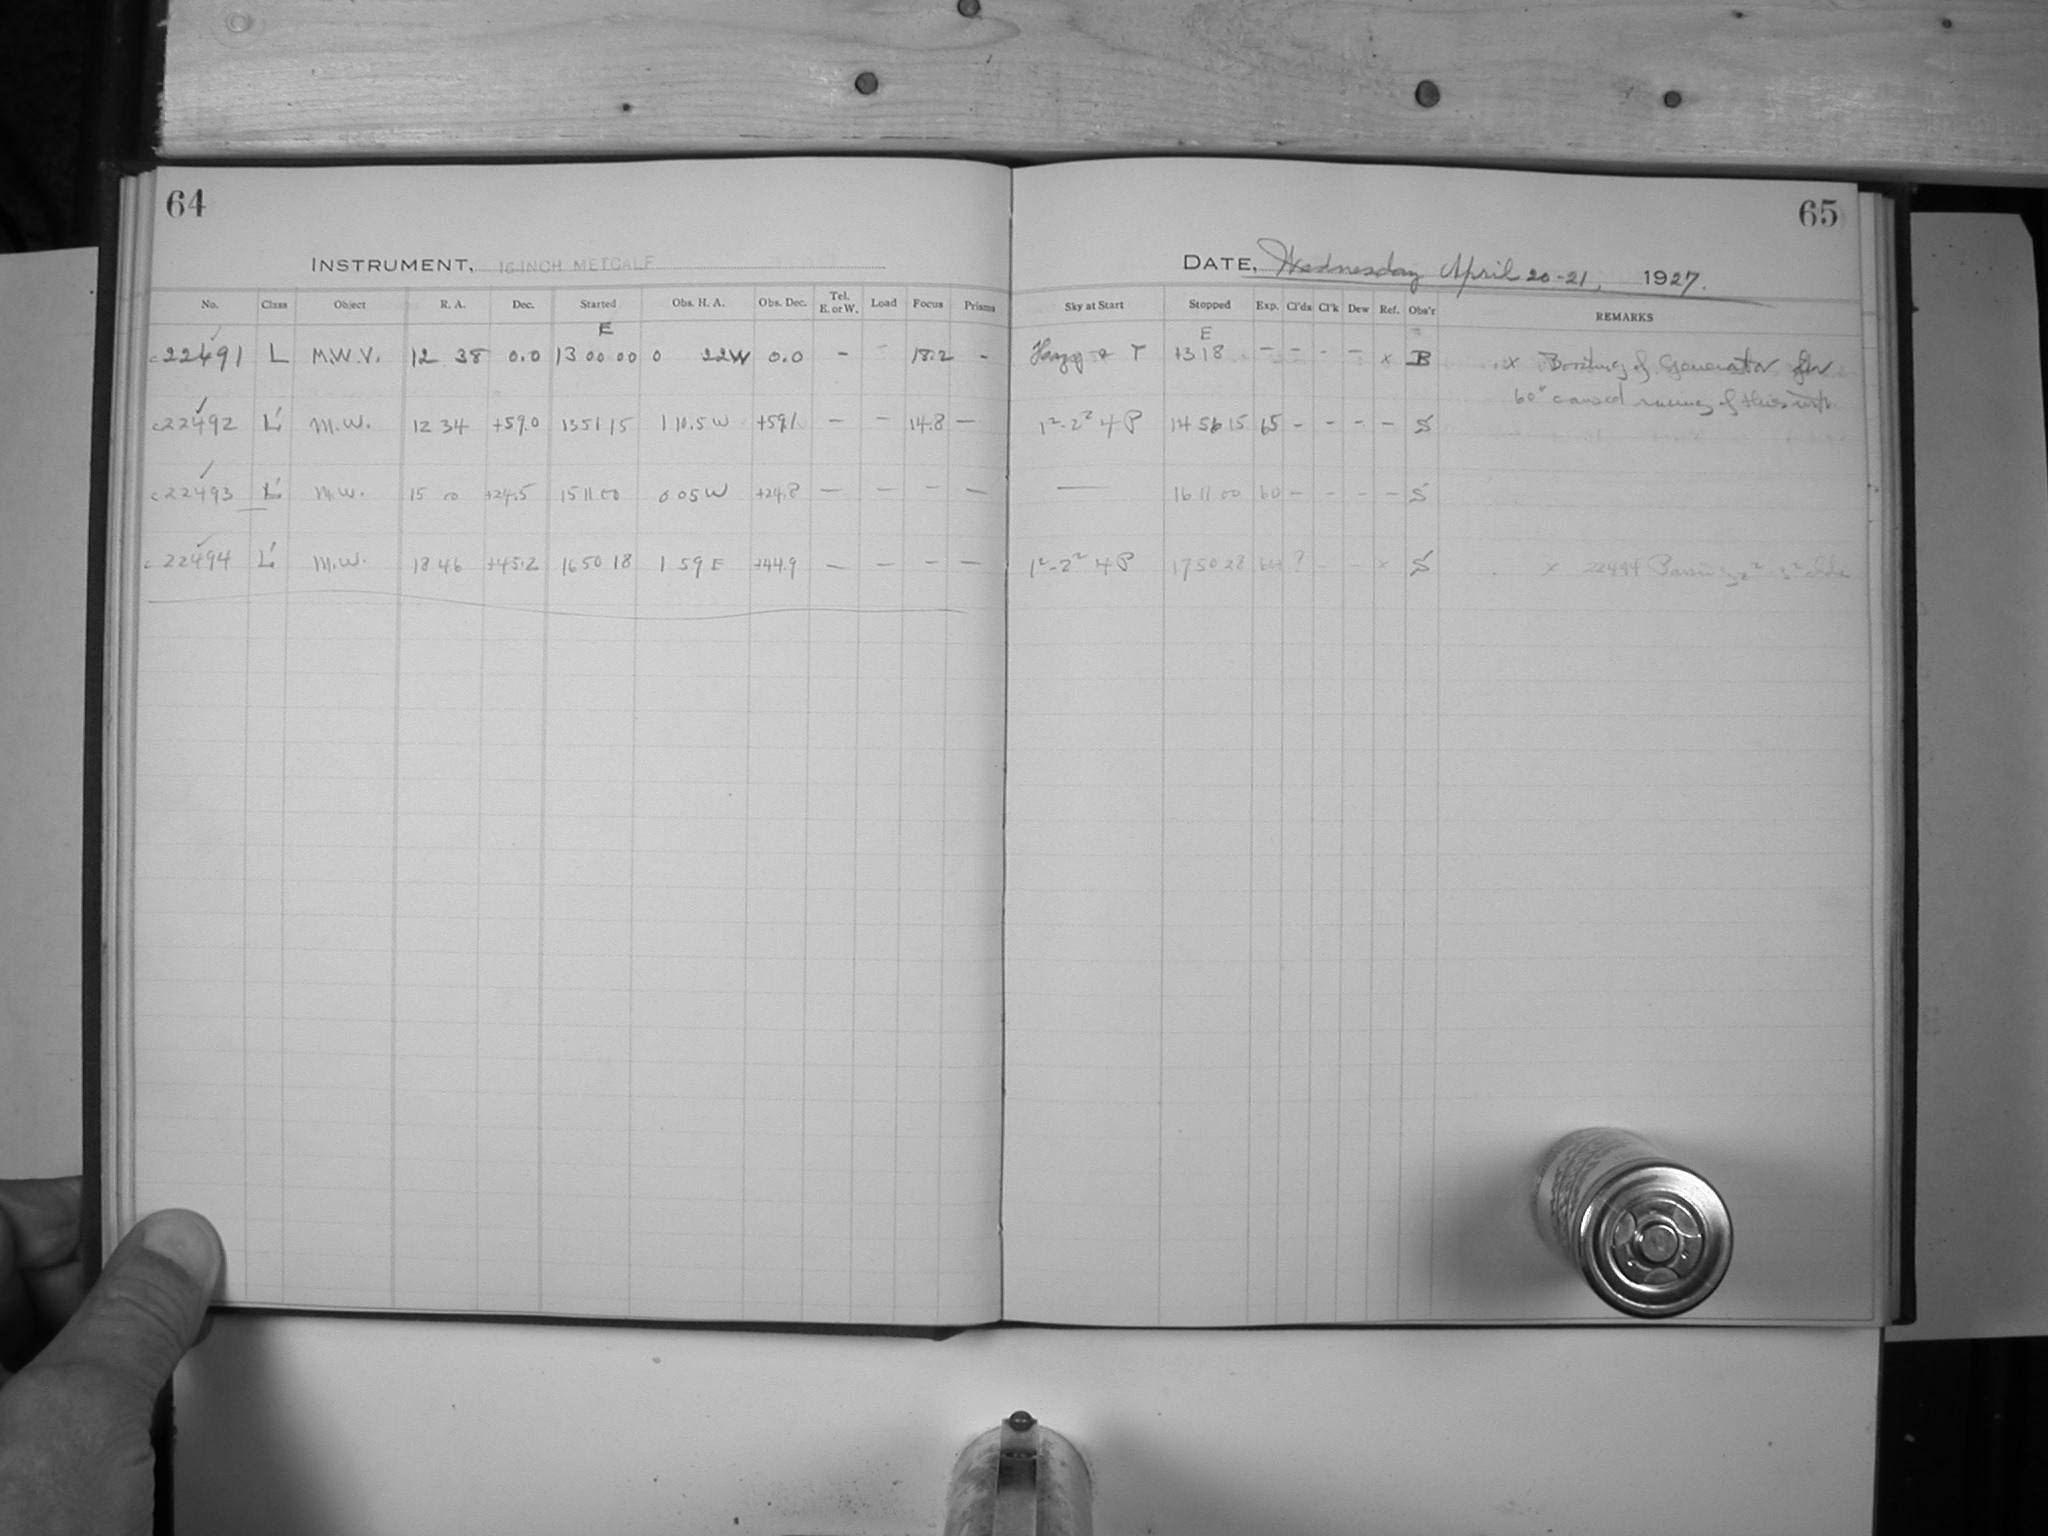 64
65
INSTRUMENT, 16-INCH METCALF
DATE, Wednesday April 20-21, 1927.
No. Class Object R. A. Dec. Started Obs. H. A. Obs. Dec. Tel. E. or W. Load Focus Prisms Sky at Start Stopped Exp. Cl'ds Cl'k Dew Ref. Obs'r REMARKS
E E
c22491 L M.W.V. 12 38 0.0 13 00 00 0 22W 0.0 - - 18.2 - Hazy T 1318 - - - - x B x of Generator for
60" caused racing of this
c22492 L' M.W. 12 34 +59.0 13 51 15 1 10.5 W +59.1 - - 14.8 - 1²-2² 4 P 14 56 15 65 - - - - S
c22493 L' M.W. 15 00 +24.5 15 11 00 0 05 W +24.8 - - - - — 16 11 00 60 - - - - S
c22494 L' M.W. 18 46 +45.2 16 50 18 1 59 E +44.9 - - - - 1²-2² 4 P 17 50 28 60 ? - - x S x 22494 Passing 2²-3² clds